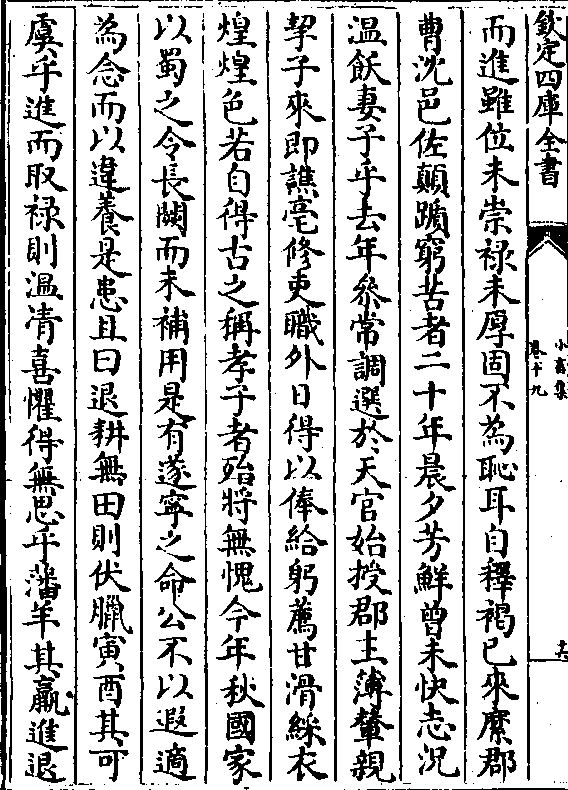 欽定四庫全書
小畜集
卷十九
而進雖位未崇禄未厚固不為恥耳自釋褐已來縻郡
曹沈邑佐顛躓窮苦者二十年晨夕芳鮮曾未快志况
温飫妻子乎去年叅常調選於天官始授郡主薄輦親
挈子來即譙亳修吏職外日得以俸給躬薦甘滑綵衣
煌煌色若自得古之稱孝子者殆將無愧今年秋國家
以蜀之令長闕而未補用是有遂寧之命公不以遐適
為念而以違養是患且曰退耕無田則伏臘寅酉其可
虞乎進而取禄則温凊喜懼得無思乎藩羊其羸進退